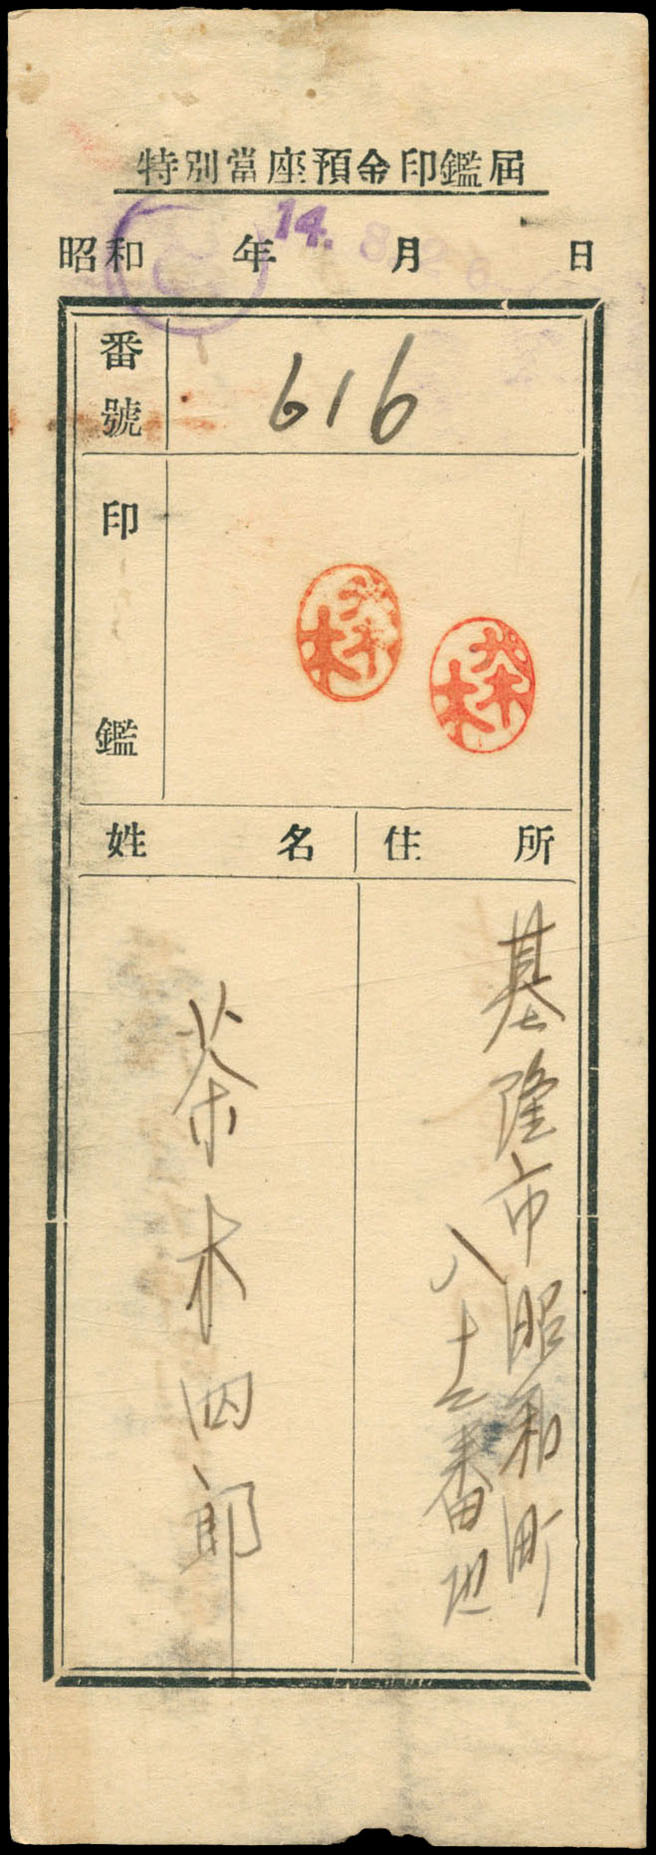 特別當座預金印鑑届
昭和 年 月 日
14. 8. 26
番號
616
印鑑
茶木
茶木
姓名
住所
基隆市昭和町
八十三番地
茶木四郎